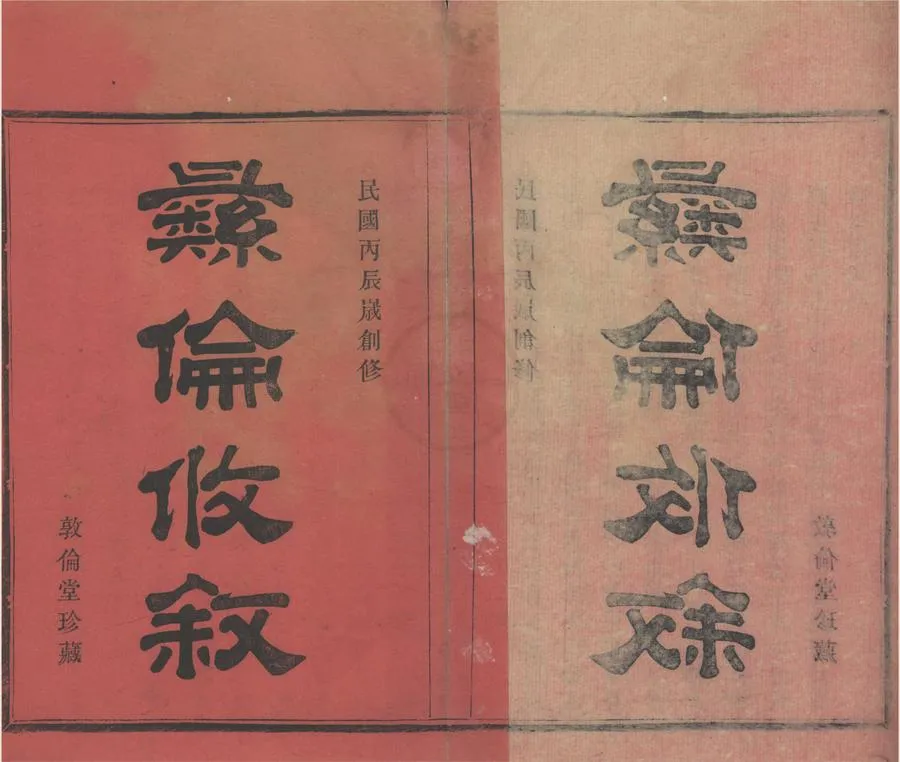 民國丙辰嵗創修
彝倫攸叙
敦倫堂珍藏